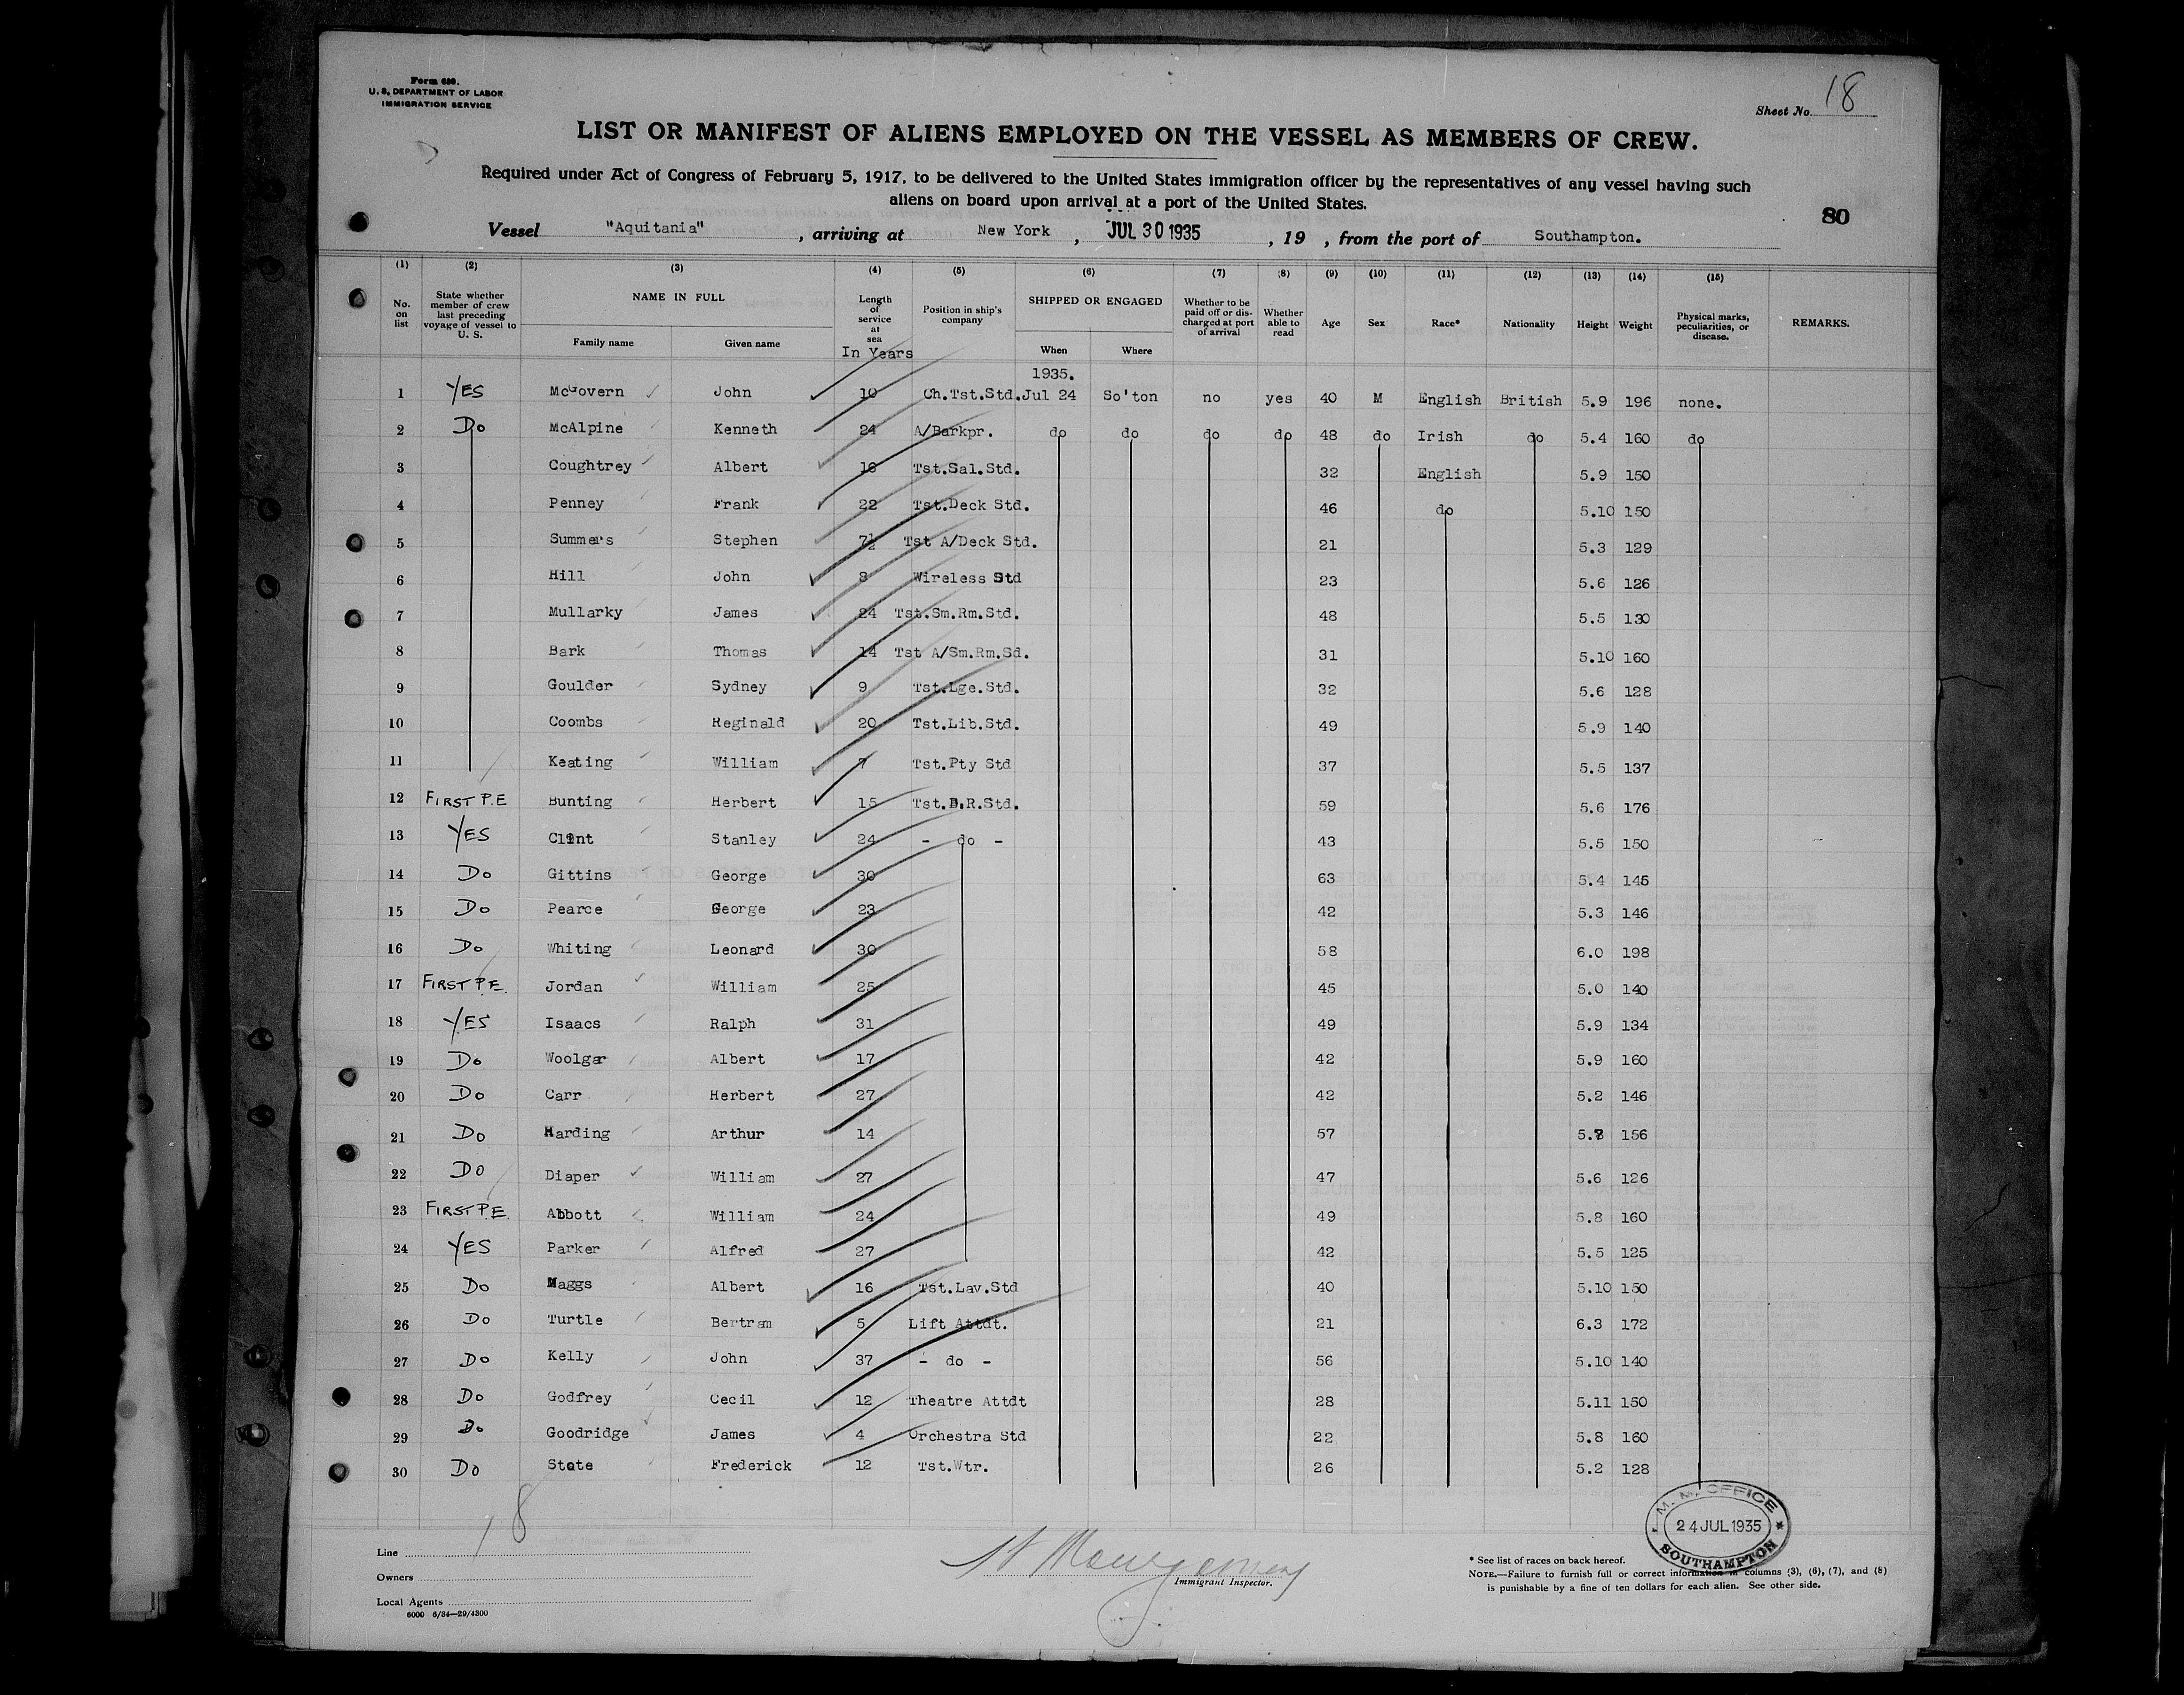 Form 680.
U. S. DEPARTMENT OF LABOR
IMMIGRATION SERVICE
Sheet No. 18
LIST OR MANIFEST OF ALIENS EMPLOYED ON THE VESSEL AS MEMBERS OF CREW.
Required under Act of Congress of February 5, 1917, to be delivered to the United States immigration officer by the representatives of any vessel having such
aliens on board upon arrival at a port of the United States.
80
Vessel "Aquitania" , arriving at New York , JUL 30 1935 , 19 , from the port of Southampton.
(1) (2) (3) (4) (5) (6) (7) (8) (9) (10) (11) (12) (13) (14) (15)
No. on list State whether member of crew last preceding voyage of vessel to U. S. NAME IN FULL Family name Given name Length of service at sea In Years Position in ship's company SHIPPED OR ENGAGED When Where Whether to be paid off or discharged at port of arrival Whether able to read Age Sex Race* Nationality Height Weight Physical marks, peculiarities, or disease. REMARKS.
1935.
1 YES McGovern John 10 Ch.Tst.Std. Jul 24 So'ton no yes 40 M English British 5.9 196 none.
2 Do McAlpine Kenneth 24 A/Barkpr. do do do do 48 do Irish do 5.4 160 do
3 Coughtrey Albert 16 Tst.Sal.Std. 32 English 5.9 150
4 Penney Frank 22 Tst.Deck Std. 46 do 5.10 150
5 Summers Stephen 7½ Tst A/Deck Std. 21 5.3 129
6 Hill John 8 Wireless Std 23 5.6 126
7 Mullarky James 24 Tst.Sm.Rm.Std. 48 5.5 130
8 Bark Thomas 14 Tst A/Sm.Rm.Sd. 31 5.10 160
9 Goulder Sydney 9 Tst.Lge.Std. 32 5.6 128
10 Coombs Reginald 20 Tst.Lib.Std. 49 5.9 140
11 Keating William 7 Tst.Pty Std 37 5.5 137
12 FIRST P.E Bunting Herbert 15 Tst.D.R.Std. 59 5.6 176
13 YES Clint Stanley 24 - do - 43 5.5 150
14 Do Gittins George 30 63 5.4 145
15 Do Pearce George 23 42 5.3 146
16 Do Whiting Leonard 30 58 6.0 198
17 FIRST P.E. Jordan William 25 45 5.0 140
18 YES Isaacs Ralph 31 49 5.9 134
19 Do Woolgar Albert 17 42 5.9 160
20 Do Carr Herbert 27 42 5.2 146
21 Do Harding Arthur 14 57 5.8 156
22 DO Diaper William 27 47 5.6 126
23 FIRST P.E. Abbott William 24 49 5.8 160
24 YES Parker Alfred 27 42 5.5 125
25 Do Maggs Albert 16 Tst.Lav.Std 40 5.10 150
26 Do Turtle Bertram 5 Lift Attdt. 21 6.3 172
27 Do Kelly John 37 - do - 56 5.10 140
28 Do Godfrey Cecil 12 Theatre Attdt 28 5.11 150
29 Do Goodridge James 4 Orchestra Std 22 5.8 160
30 Do State Frederick 12 Tst.Wtr. 26 5.2 128
18
M. M. OFFICE
24 JUL 1935
SOUTHAMPTON
Line
Owners
Local Agents
6000 6/34—29/4300
Immigrant Inspector.
* See list of races on back hereof.
NOTE.—Failure to furnish full or correct information in columns (3), (6), (7), and (8)
is punishable by a fine of ten dollars for each alien. See other side.